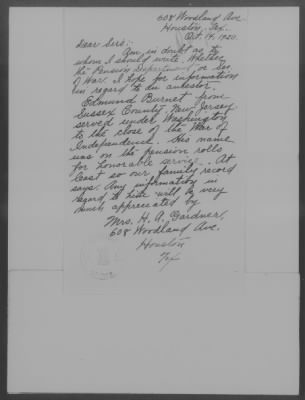 608 Woodland Ave.
Houston, Tex.
Oct. 14, 1920.
Dear Sirs:-
Am in doubt as to
whom I should write, Whether
the Pension Department or Sec.
of War. I hope for information
in regard to an ancestor
Edmund Burnet from
Sussex County New Jersey
served under Washington
to the close of the War of
Independence. His name
was on the pension rolls
for honorable service. At
least so our family record
says. Any information in
regard to him will be very
much appreciated by
Mrs. H. A. Gardner,
608 Woodland Ave.
Houston
Tex